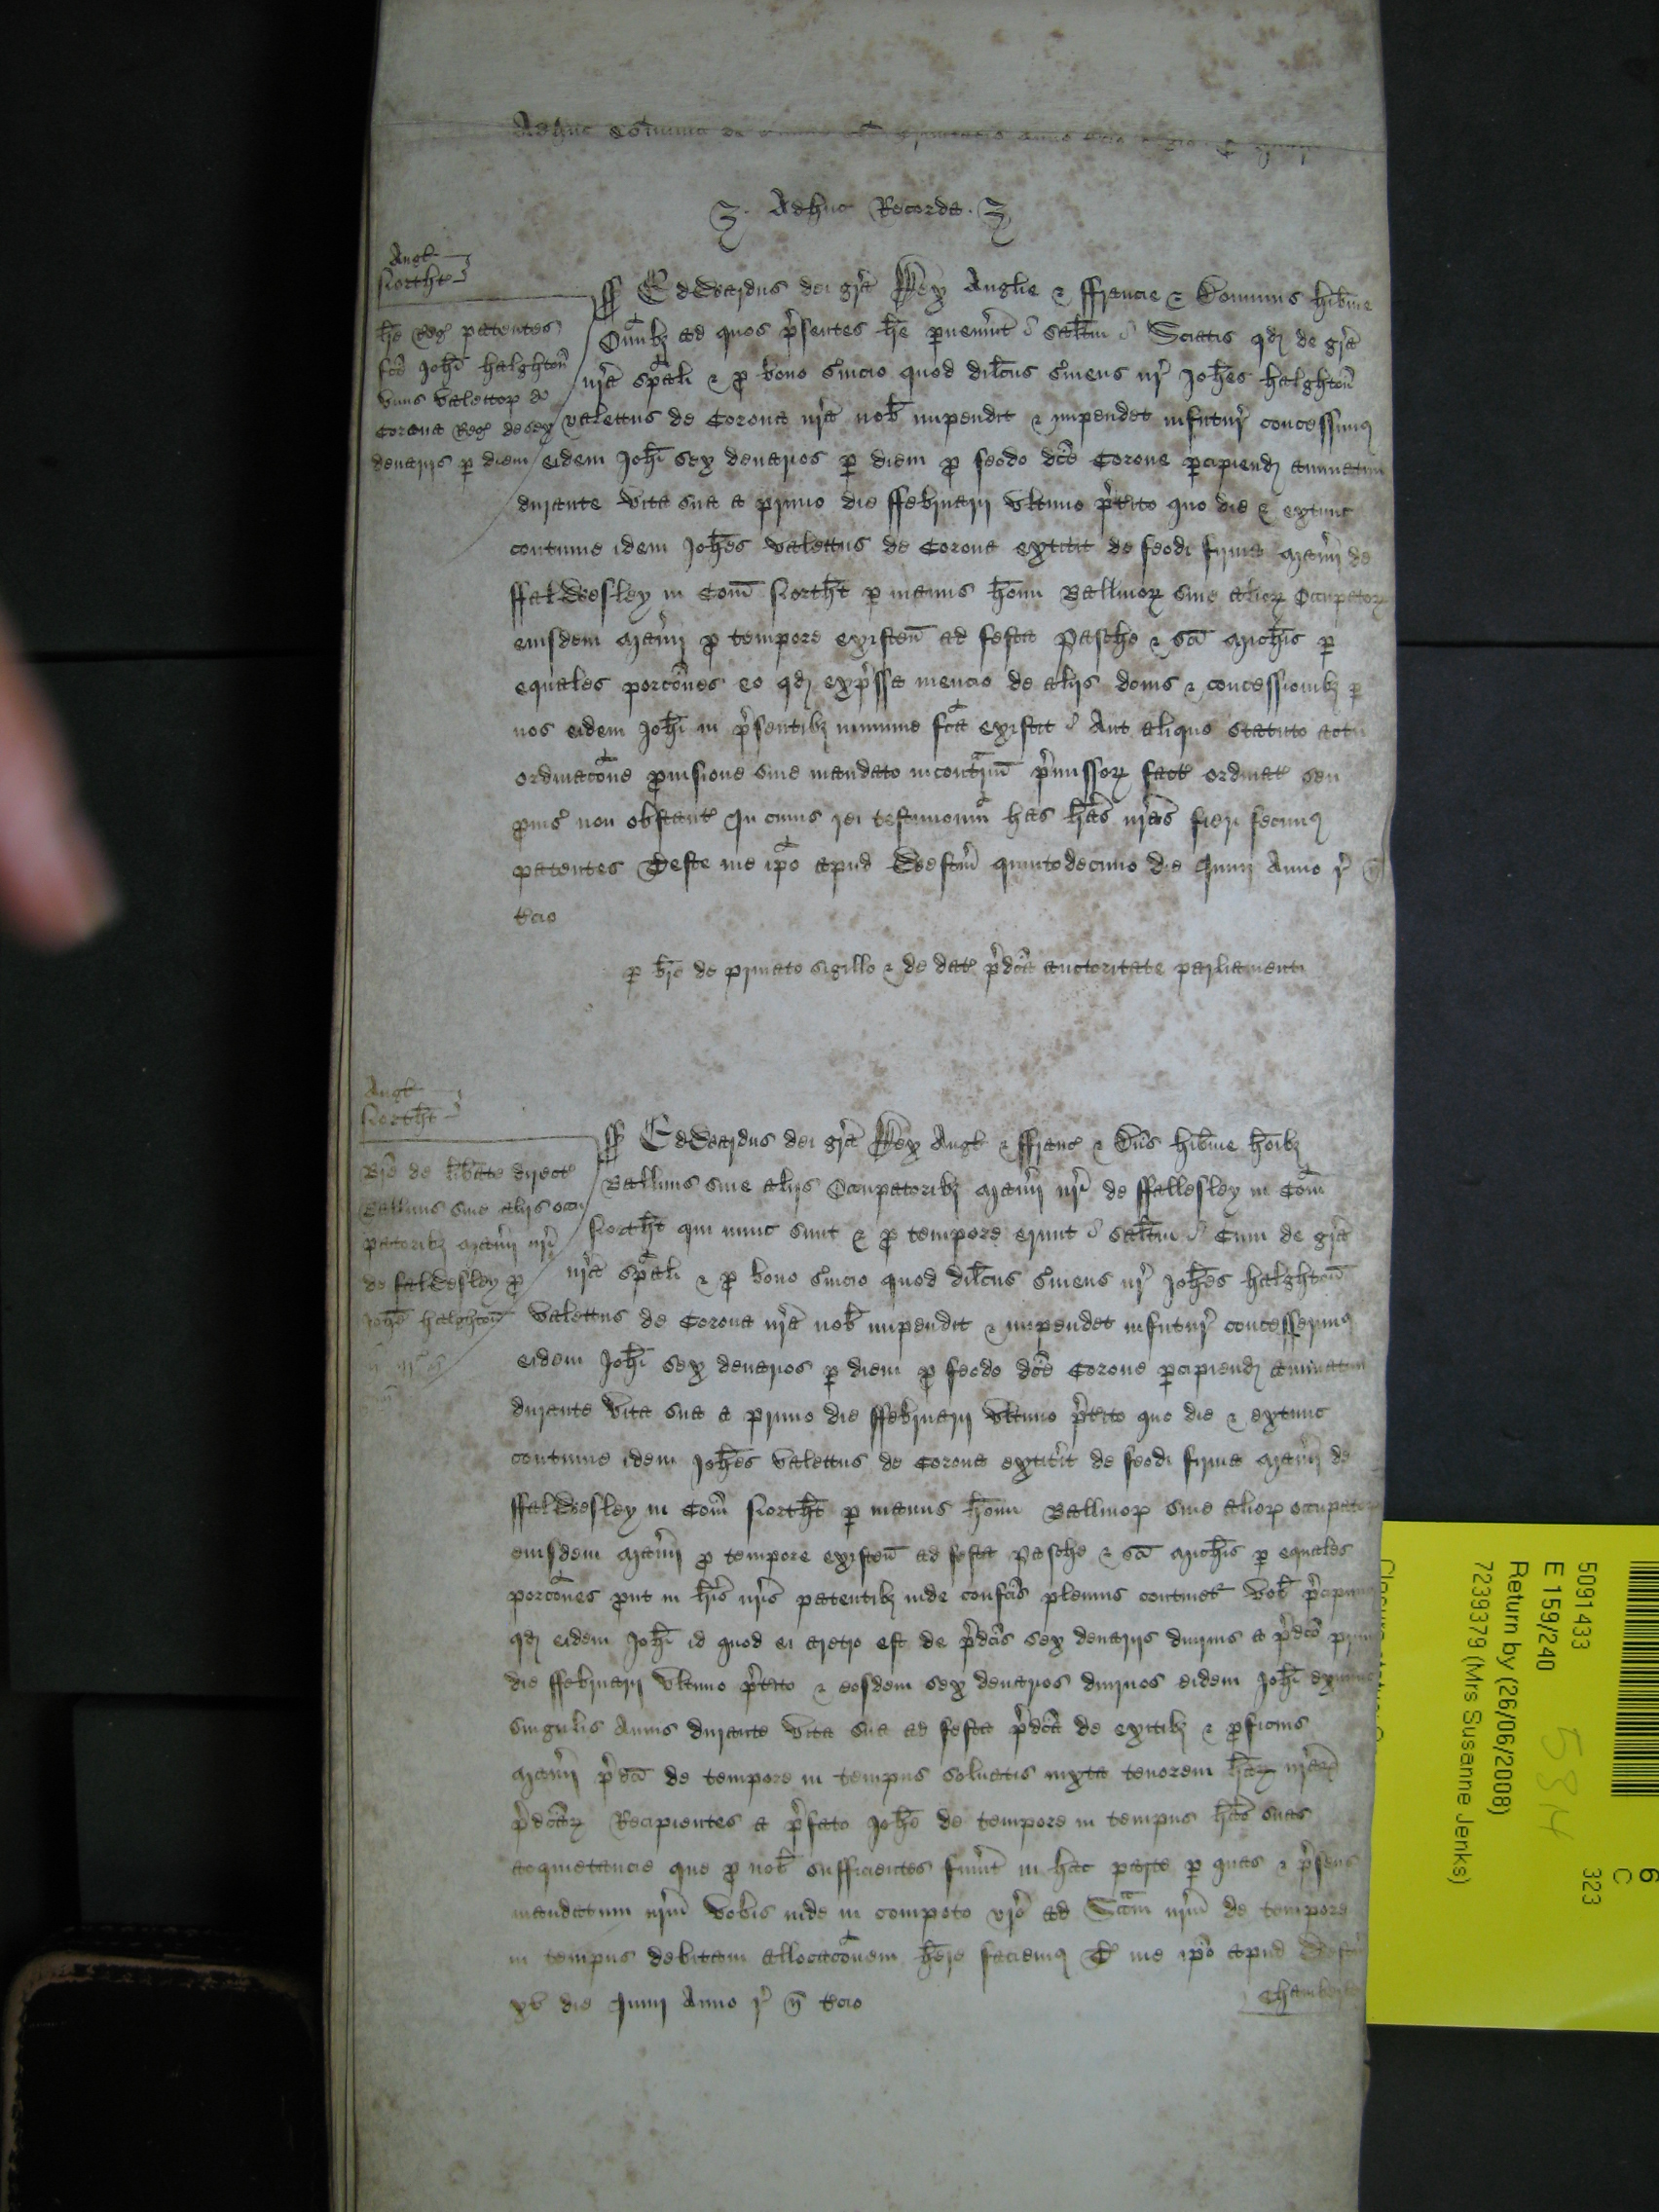 Adhuc Cōmunia de
Adhuc Recorda
Angl
Northt
lr̄e Reg̃ patentes
fc̄e Joh̄i halghton̄
vnius valettoꝝ de
Corona Reg̃ de sex
denarijs ꝑ diem
Edwardus dei gr̄a Rex Anglie ⁊ ffrancie ⁊ Dominus hib̄nie
Om̄ibꝫ ad quos p̄sentes lr̄e ꝑuen̄int sal̄tm Sciatis qđ de gr̄a
nr̄a sp̄ali ⁊ ꝓ bono s̄uicio quod dil̄cus s̄uiens nr̄ Joh̄es halghton̄
valettus de Corona nr̄a nob̄ impendit ⁊ impendet infutur̄ concessimꝰ
eidem Joh̄i sex denarios ꝑ diem ꝓ feodo dc̄e Corone ꝑcipiend̄ annuatim
durante vita sua a primo die ffebruarij vltimo p̄t̄ito quo die ⁊ extunc
continue idem Joh̄es valettus de Corona extitit de feodi firma Man̄ij de
ffalwesley in Com̄ Northt̄ ꝑ manus fir̄m Balliuoꝝ siue alioꝝ Occupatoꝝ
eiusdem Man̄ij ꝓ tempore existen̄ ad festa Pasche ⁊ sc̄i Mich̄is ꝑ
equales porc̄ones eo qđ exp̄ssa mencio de alijs donis ⁊ concessionibꝫ ꝑ
nos eidem Joh̄i in p̄sentibꝫ minime fc̄a existit Aut aliquo statuto actu
ordinac̄one ꝓuisione siue mandato incontr̄ium p̄missoꝝ fact̄ ordinat̄ seu
ꝓuis̄ non obstant̄ In cuius rei testimoniū has lr̄as nr̄as fieri fecimꝰ
patentes Teste me ip̄o apud Westm̄ quintodecimo die Junij Anno r̄ n̄
t̄cio
ꝑ br̄e de priuato sigillo ⁊ de dat̄ p̄dc̄a auctoritate parliamenti
Angl
Northt̄
Br̄e de lib̄ate direct̄
Balliuis siue alijs occu
patoribꝫ Man̄ij nr̄i
de falwesley ꝓ
Joh̄e halghton̄
Edwardus dei gr̄a Rex Angl̄ ⁊ ffranc̄ ⁊ Dn̄s hib̄nie fir̄m
Balliuis siue alijs Occupatoribꝫ Man̄ij nr̄i de ffallesley in Com̄
Northt̄ qui nunc sunt ⁊ ꝓ tempore erunt sal̄tm Cum de gr̄a
nr̄a sp̄ali ⁊ ꝓ bono s̄uicio quod dil̄cus s̄uiens nr̄ Joh̄es halghton̄
valettus de Corona nr̄a nob̄ impendit ⁊ impendet infutur̄ concesserimꝰ
eidem Joh̄i sex denarios ꝑ diem ꝓ feodo dc̄e Corone ꝑcipiend̄ annuatim
durante vita sua a primo die ffebruarij vltimo p̄t̄ito quo die ⁊ extunc
continue idem Joh̄es valettus de Corona extit̄it de feodi firma Man̄ij de
ffalwesley in Com̄ Northt̄ ꝑ manus fir̄m Balliuoꝝ siue alioꝝ occupatoꝝ
eiusdem Man̄ij ꝓ tempore existen̄ ad festa Pasche ⁊ sc̄i Mich̄is ꝑ equales
porc̄ones ꝓut in lr̄is nr̄is patentibꝫ inde confc̄is plenius continet̄ vob̄ p̄cipimꝰ
qđ eidem Joh̄i id quod ei aretro est de p̄dc̄is sex denarijs diurnis a p̄dc̄o primo
die ffebruarij vltimo p̄t̄ito ⁊ eosdem sex denarios diurnos eidem Joh̄i extunc
singulis Annis durante vita sua ad festa p̄dc̄a de exitibꝫ ⁊ ꝓficuis
Man̄ij p̄dc̄i de tempore in tempus soluatis iuxta tenorem lr̄aꝝ nr̄aꝝ
p̄dc̄aꝝ Recipientes a p̄fato Joh̄e de tempore in tempus lr̄as suas
acquietancie que ꝓ nob̄ sufficientes fuerint in hac parte ꝑ quas ⁊ p̄sens
mandatum nr̄m vobis inde in compoto vr̄o ad Sc̄cm nr̄m de tempore
in tempus debitam allocac̄onem h̄ere faciemꝰ T̄ me ip̄o apud Westm̄
xv die Junij Anno r̄ n̄ t̄cio
5091433
E 159/240
Return by (26/06/2008)
7239379 (Mrs Susanne Jenks)
5814
323
C
6